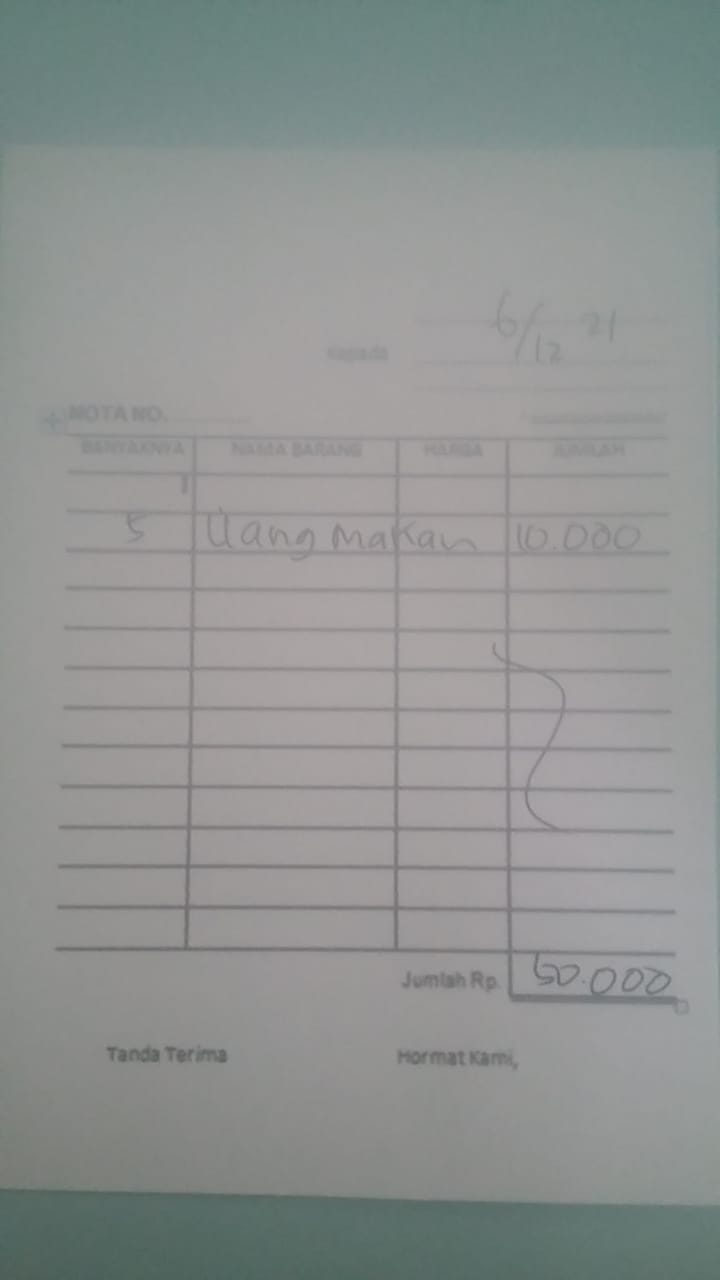 6/12 21
Kepada
NOTA NO.
BANYAKNYA NAMA BARANG HARGA JUMLAH
5 Uang makan 10.000
Jumlah Rp. 50.000
Tanda Terima Hormat Kami,